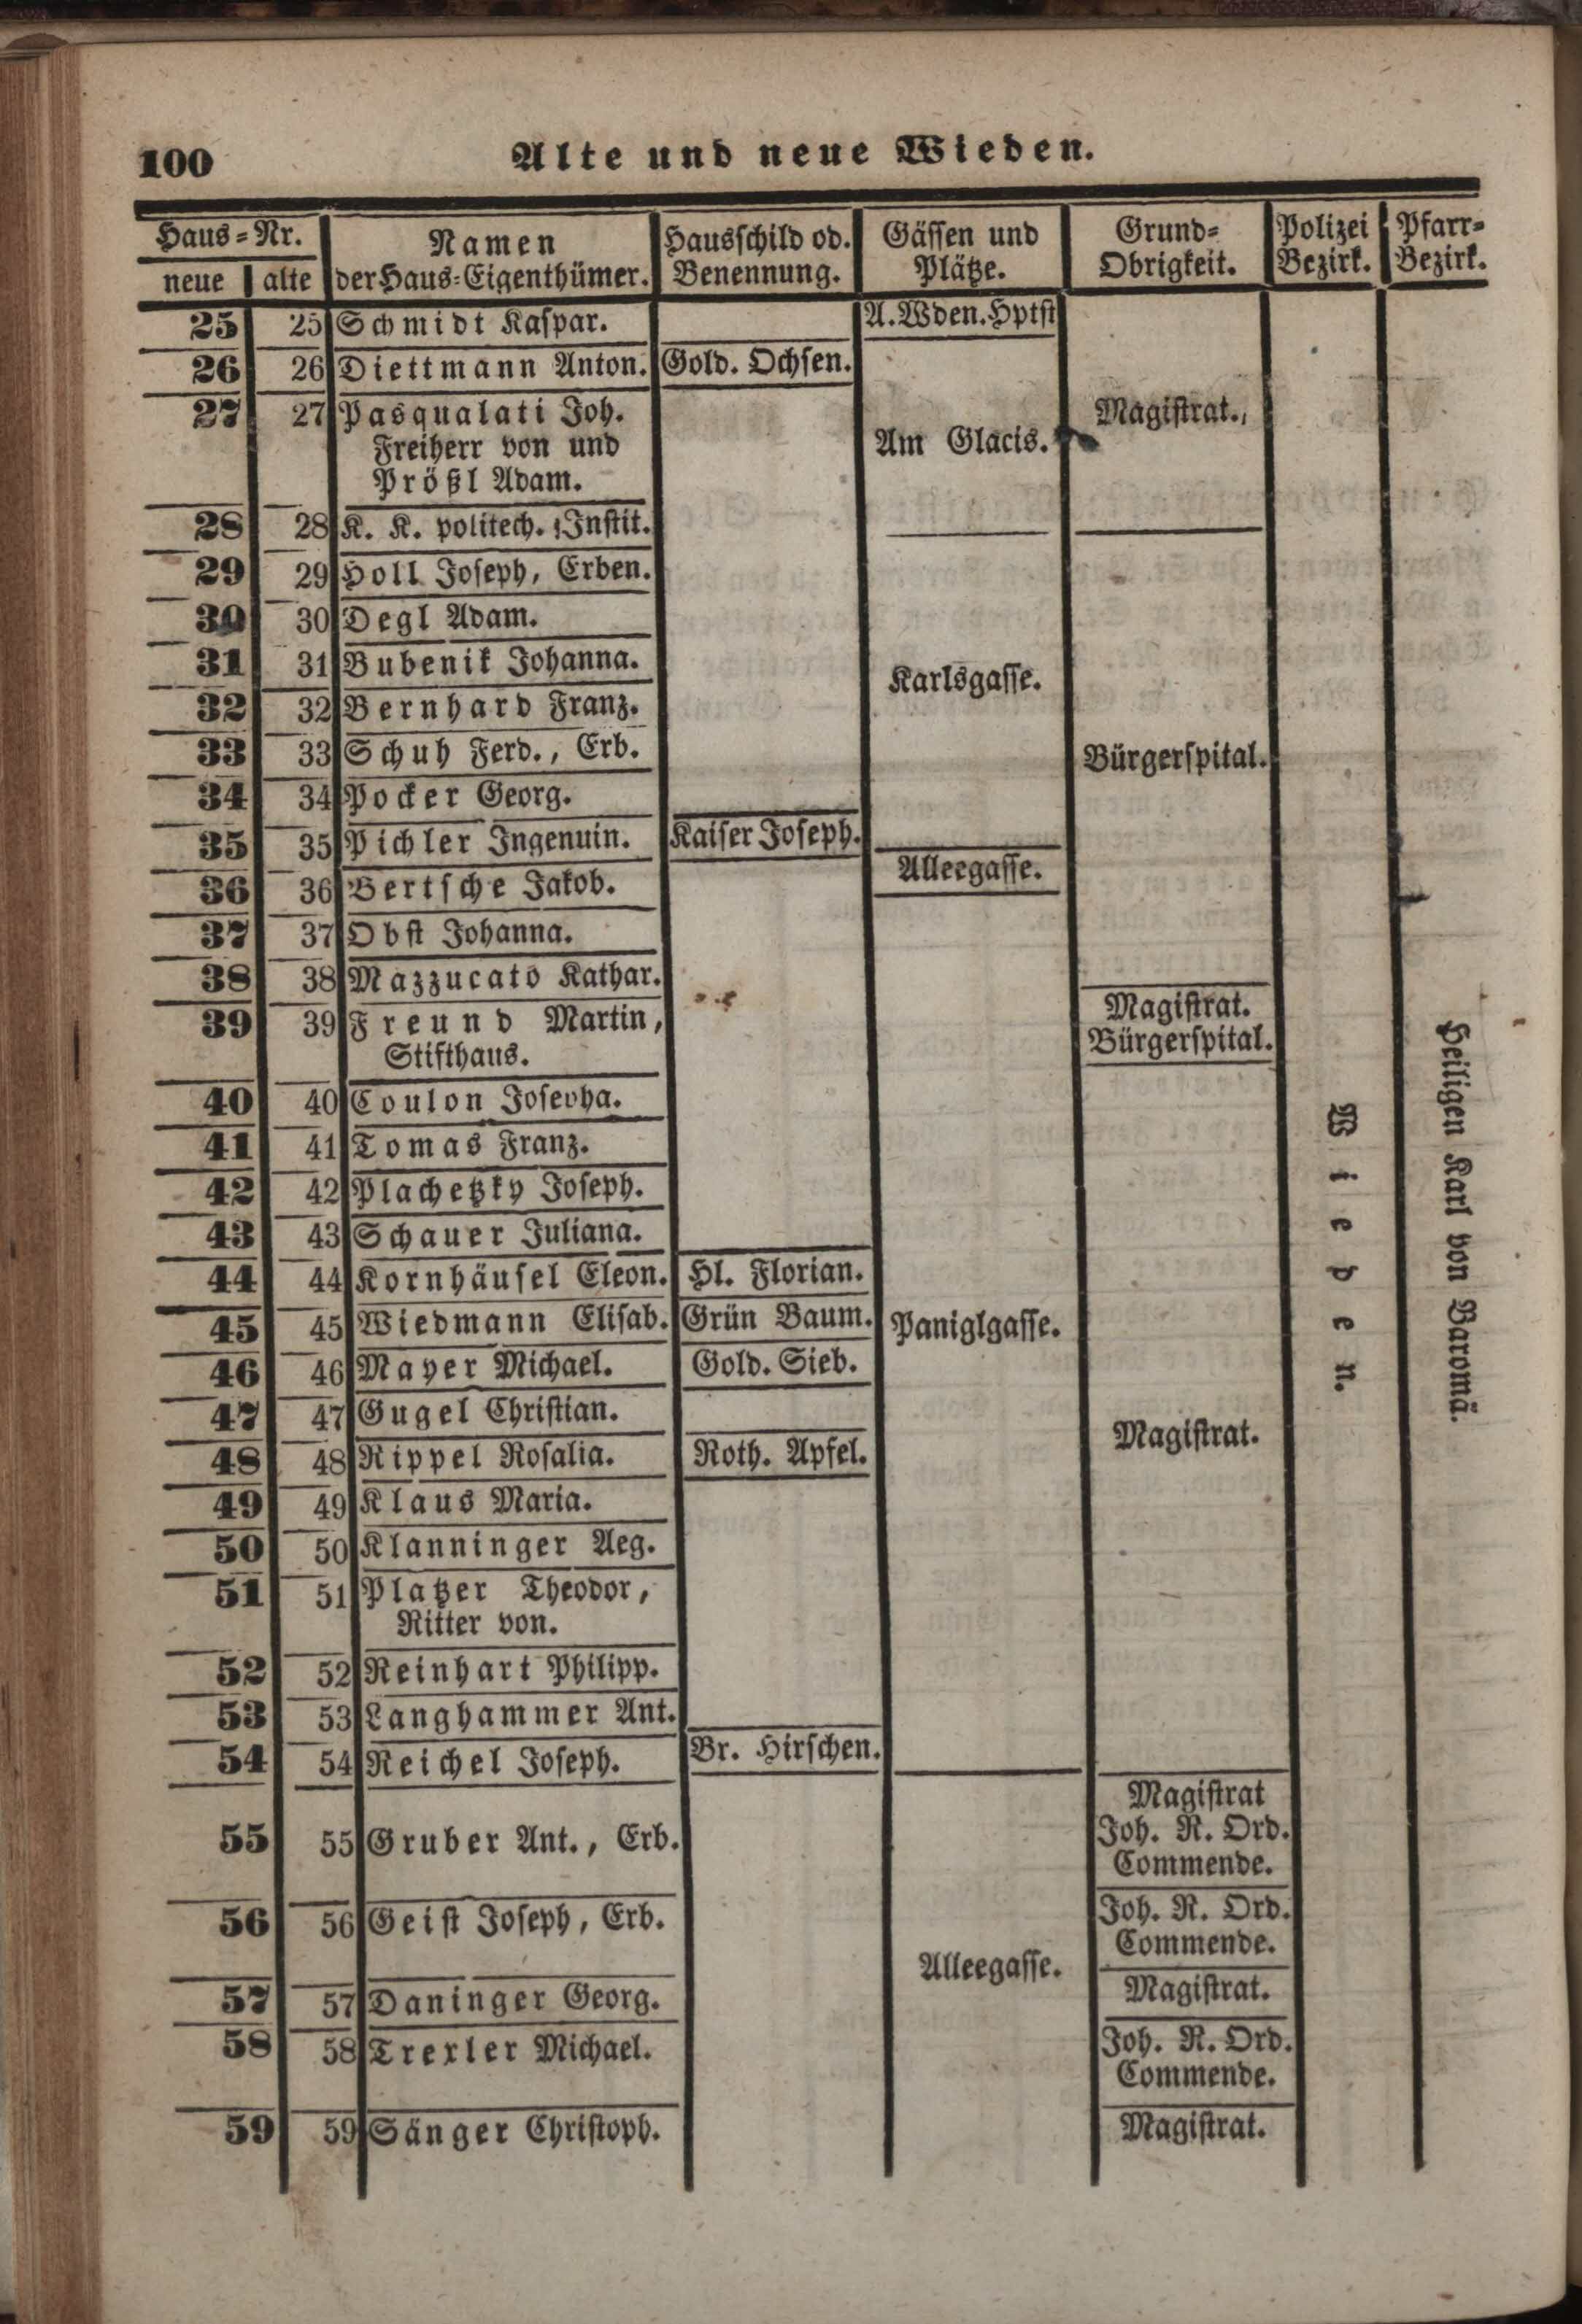 100 Alte und neue Wieden.
Haus=Nr. Namen Hausschild od. Gässen und Grund= Polizei Pfarr=
neue alte der Haus=Eigenthümer. Benennung. Plätze. Obrigkeit. Bezirk. Bezirk.
25 25 Schmidt Kaspar. A. Wden. Hptst
26 26 Diettmann Anton. Gold. Ochsen.
27 27 Pasqualati Joh. Magistrat.
Freiherr von und Am Glacis.
Prößl Adam.
28 28 K. K. politech. Instit.
29 29 Holl Joseph, Erben.
30 30 Degl Adam.
31 31 Bubenik Johanna. Karlsgasse.
32 32 Bernhard Franz.
33 33 Schuh Ferd., Erb. Bürgerspital.
34 34 Pocker Georg.
35 35 Pichler Ingenuin. Kaiser Joseph.
36 36 Bertsche Jakob. Alleegasse.
37 37 Obst Johanna.
38 38 Mazzucato Kathar.
39 39 Freund Martin, Magistrat.
Stifthaus. Bürgerspital.
40 40 Coulon Josepha.
41 41 Tomas Franz.
42 42 Plachetzky Joseph.
43 43 Schauer Juliana.
44 44 Kornhäusel Eleon. Hl. Florian.
45 45 Wiedmann Elisab. Grün Baum. Paniglgasse.
46 46 Mayer Michael. Gold. Sieb.
47 47 Gugel Christian. Magistrat.
48 48 Rippel Rosalia. Roth. Apfel.
49 49 Klaus Maria.
50 50 Klanninger Aeg.
51 51 Platzer Theodor,
Ritter von.
52 52 Reinhart Philipp.
53 53 Langhammer Ant.
54 54 Reichel Joseph. Br. Hirschen.
Magistrat
55 55 Gruber Ant., Erb. Joh. R. Ord.
Commende.
56 56 Geist Joseph, Erb. Joh. R. Ord.
Commende.
Alleegasse.
57 57 Daninger Georg. Magistrat.
58 58 Trexler Michael. Joh. R. Ord.
Commende.
59 59 Sänger Christoph. Magistrat.
Wieden.
Heiligen Karl von Baromä.